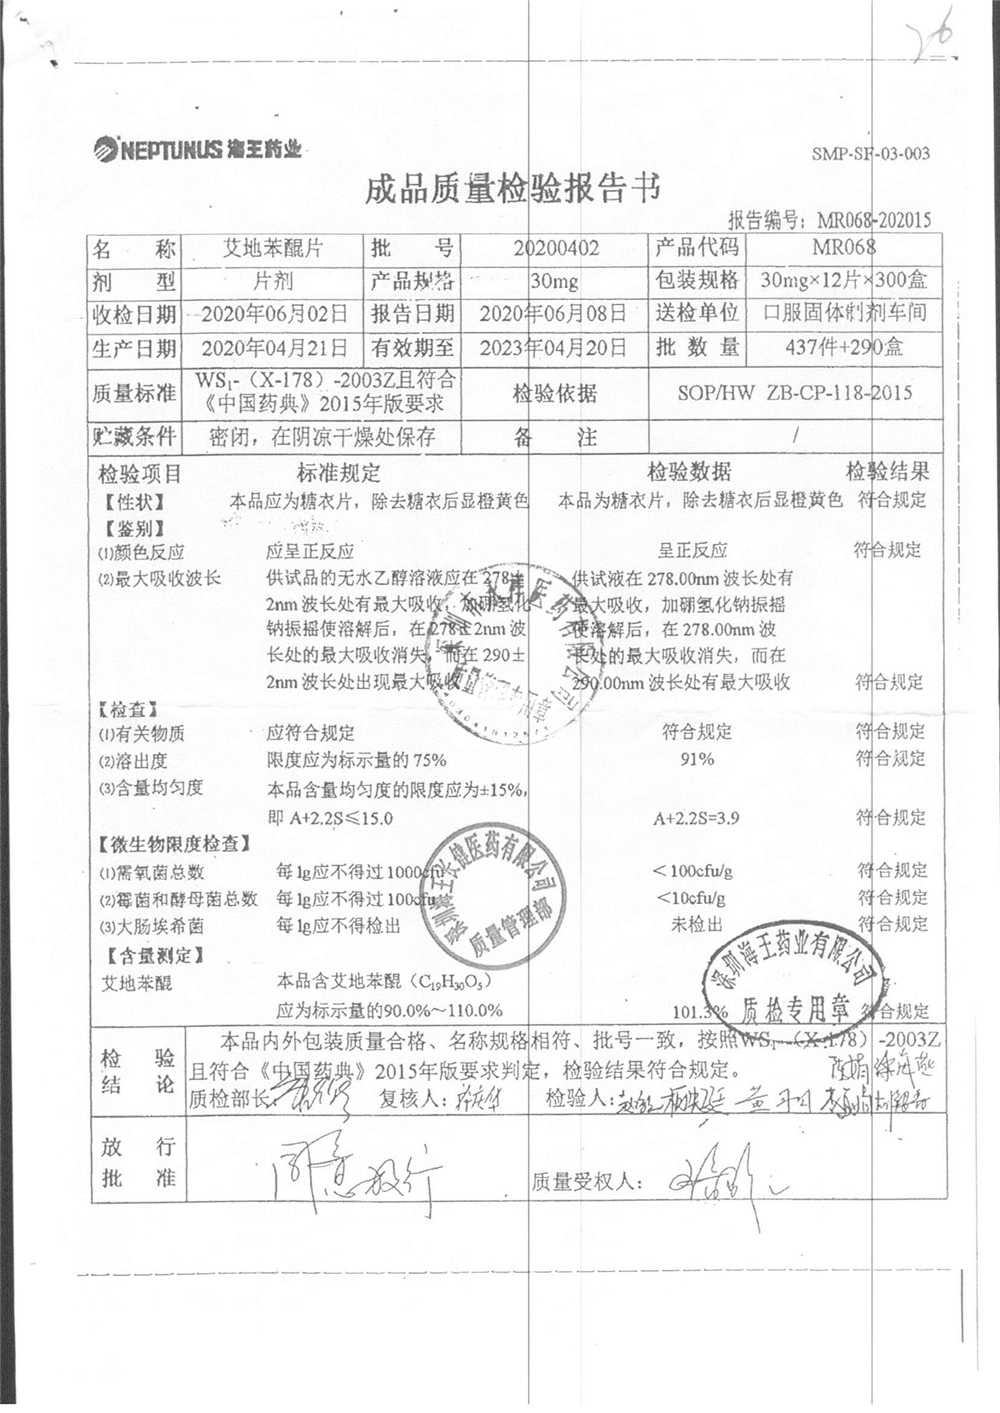 26
NEPTUNUS 海王药业
SMP-SF-03-003
成品质量检验报告书
报告编号：MR068-202015
名 称 艾地苯醌片 批 号 20200402 产品代码 MR068
剂 型 片剂 产品规格 30mg 包装规格 30mg×12片×300盒
收检日期 2020年06月02日 报告日期 2020年06月08日 送检单位 口服固体制剂车间
生产日期 2020年04月21日 有效期至 2023年04月20日 批 数 量 437件+290盒
质量标准 WS₁-（X-178）-2003Z且符合《中国药典》2015年版要求 检验依据 SOP/HW ZB-CP-118-2015
贮藏条件 密闭，在阴凉干燥处保存 备 注 /
检验项目 标准规定 检验数据 检验结果
【性状】 本品应为糖衣片，除去糖衣后显橙黄色 本品为糖衣片，除去糖衣后显橙黄色 符合规定
【鉴别】
⑴颜色反应 应呈正反应 呈正反应 符合规定
⑵最大吸收波长 供试品的无水乙醇溶液应在 278± 供试液在 278.00nm 波长处有
2nm 波长处有最大吸收，加硼氢化 最大吸收，加硼氢化钠振摇
钠振摇使溶解后，在 278±2nm 波 使溶解后，在 278.00nm 波
长处的最大吸收消失，而在 290± 长处的最大吸收消失，而在
2nm 波长处出现最大吸收 290.00nm 波长处有最大吸收 符合规定
【检查】
⑴有关物质 应符合规定 符合规定 符合规定
⑵溶出度 限度应为标示量的 75% 91% 符合规定
⑶含量均匀度 本品含量均匀度的限度应为±15%，
即 A+2.2S≤15.0 A+2.2S=3.9 符合规定
【微生物限度检查】
⑴需氧菌总数 每 1g应不得过 1000cfu ＜100cfu/g 符合规定
⑵霉菌和酵母菌总数 每 1g应不得过 100cfu <10cfu/g 符合规定
⑶大肠埃希菌 每 1g应不得检出 未检出 符合规定
【含量测定】
艾地苯醌 本品含艾地苯醌（C₁₉H₃₀O₅）
应为标示量的90.0%～110.0% 101.3% 符合规定
深圳海王长健医药有限公司
质量管理部
深圳海王药业有限公司
质检专用章
检 验 结 论 本品内外包装质量合格、名称规格相符、批号一致，按照WS₁-（X-178）-2003Z
且符合《中国药典》2015年版要求判定，检验结果符合规定。
质检部长： 复核人： 检验人：
放 行 批 准 同意放行 质量受权人：